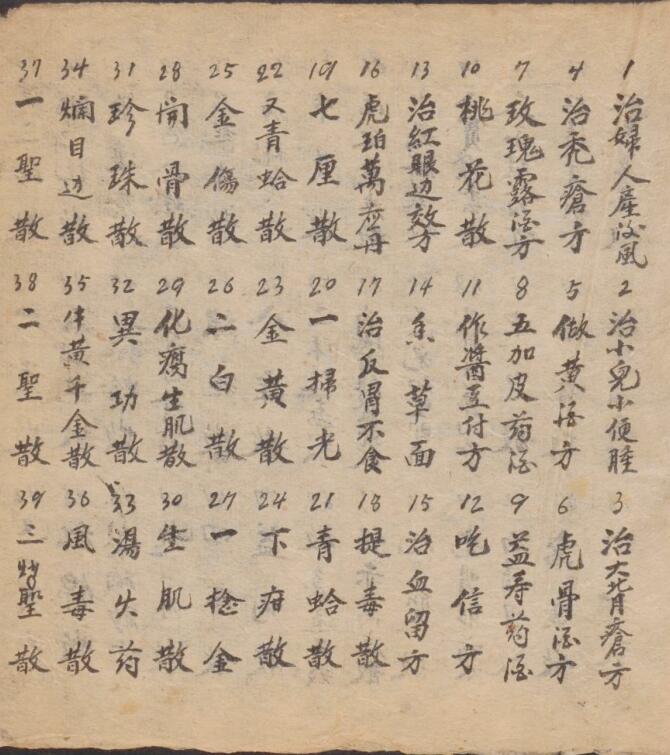 1 治婦人産後風
2 治小兒小便腫
3 治大背瘡方
4 治禿瘡方
5 做黄酒方
6 虎骨酒方
7 玫瑰露酒方
8 五加皮药酒
9 益寿药酒
10 桃花散
11 作醬豆付方
12 吃信方
13 治紅眼边效方
14 香草面
15 治血留方
16 虎珀萬应丹
17 治反胃不食
18 提毒散
19 七厘散
20 一掃光
21 青蛤散
22 又青蛤散
23 金黄散
24 下疳散
25 金傷散
26 二白散
27 一捻金
28 開骨散
29 化腐生肌散
30 生肌散
31 珍珠散
32 異功散
33 湯火药
34 爛目边散
35 牛黄千金散
36 風毒散
37 一聖散
38 二聖散
39 三聖散